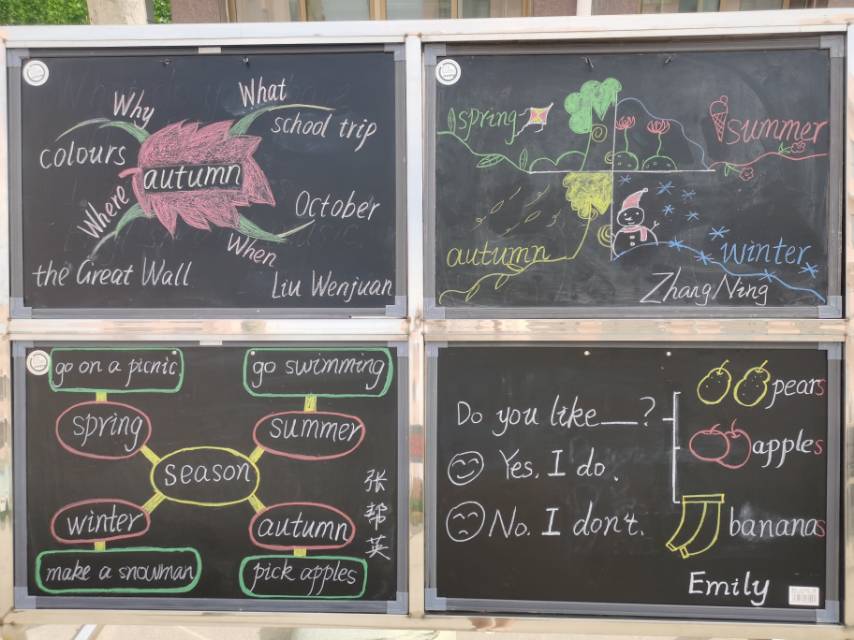 Why
What
colours
school trip
autumn
Where
When
October
the Great Wall
Liu Wenjuan
spring
summer
autumn
winter
Zhang Ning
go on a picnic
go swimming
spring
summer
season
winter
autumn
make a snowman
pick apples
张帮英
Do you like ___?
Yes, I do.
No. I don't.
pears
apples
bananas
Emily